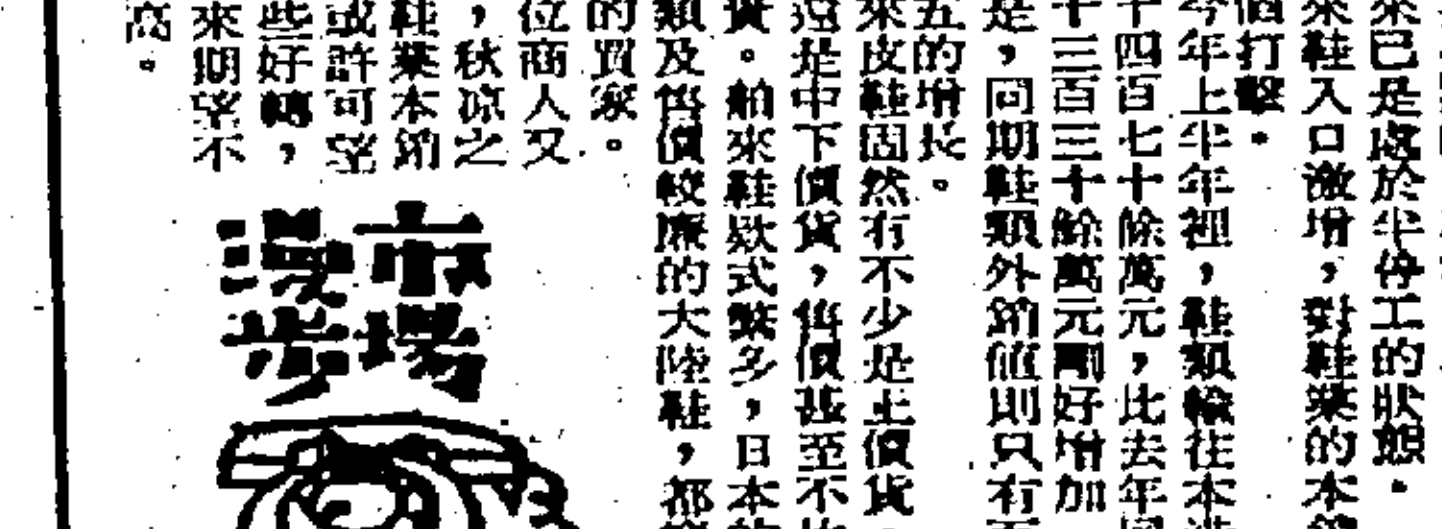 來已是處於半停工的狀態。
來鞋入口激增，對鞋業的本銷
個打擊。
今年上半年裡，鞋類輸往本港
千四百七十餘萬元，比去年同
千三百三十餘萬元剛好增加
是，同期鞋類外銷値則只有百
五的增長。
來皮鞋固然有不少是上價貨，
還是中下價貨，售價甚至不比
貨。舶來鞋欵式繁多，日本的
類及售價較廉的大陸鞋，都
的買家。
位商人又
，秋凉之
鞋業本銷
或許可望
些好轉，
來期望不
高。
市場
漫步